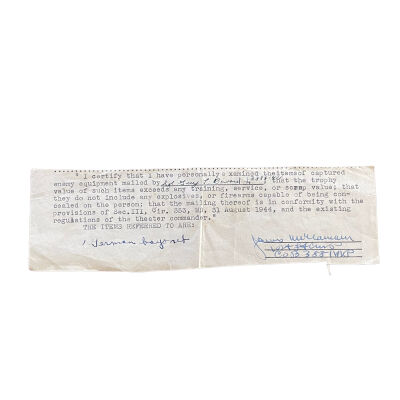 "I certify that I have personally examined the items of captured
enemy equipment mailed by that the trophy
value of such items exceeds any training, service, or scrap value; that
they do not include any explosives, or firearms capable of being con-
cealed on the person; that the mailing thereof is in conformity with the
provisions of Sec.III, Cir. 353, WD, 31 August 1944, and the existing
regulations of the theater commander."
THE ITEMS REFERRED TO ARE:
1 German bayonet
James